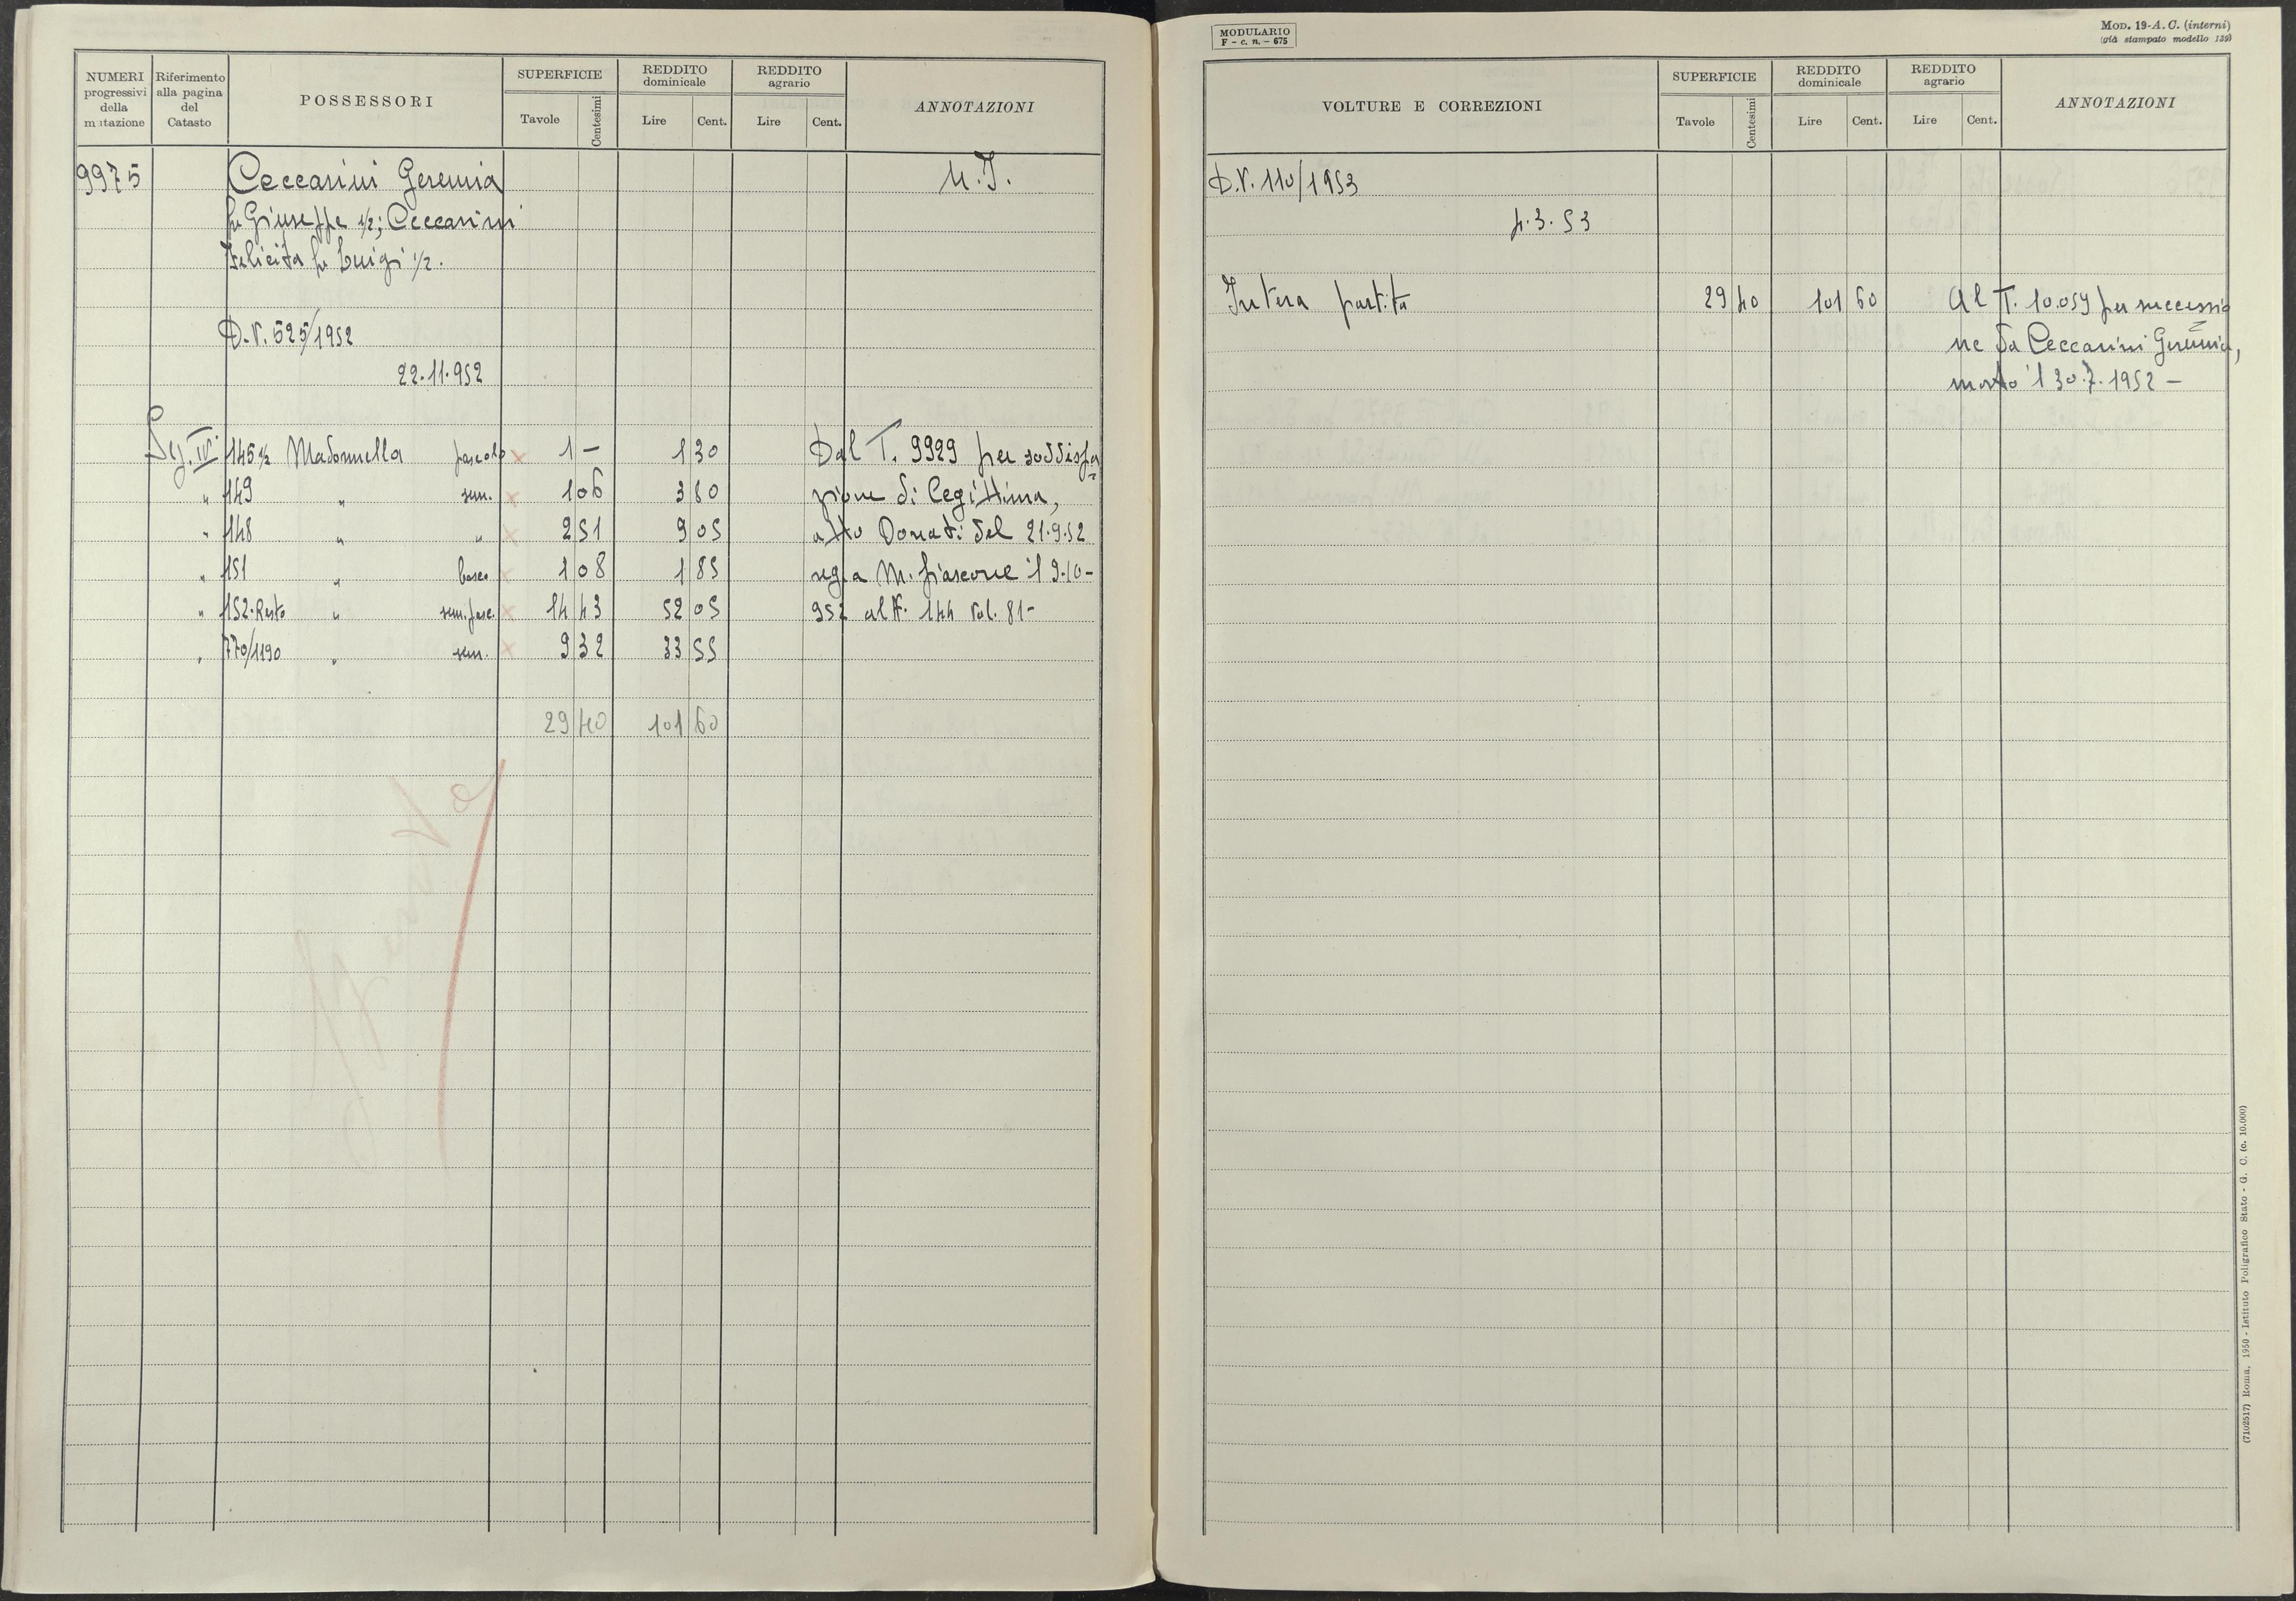 NUMERI progressivi della mutazione
Riferimento alla pagina del Catasto
POSSESSORI
SUPERFICIE
Tavole Centesimi
REDDITO dominicale
Lire Cent.
REDDITO agrario
Lire Cent.
ANNOTAZIONI
9975 Ceccarini Geremia M.I.
fu Giuseppe 1/2; Ceccarini
Felicita fu Luigi 1/2.
D.V. 525/1952
22.11.952
Sez. IV 145 1/2 Madonnella pascolo × 1 - 1 30 Dal T. 9929 per soddisfa
" 149 " sem. × 1 06 3 80 zione di legittima,
" 148 " " × 2 51 9 05 atto Donati del 21.9.52
" 151 " bosco × 1 08 1 85 reg. a M. fiascone il 9-10-
" 152. Resto " sem. pasc. × 14 43 52 05 952 al N. 144 Vol. 81-
" 770/1190 " sem. × 9 32 33 55
29 40 101 60
MODULARIO
F - c. n. - 675
MOD. 19-A. C. (interni)
(già stampato modello 139)
VOLTURE E CORREZIONI
SUPERFICIE
Tavole Centesimi
REDDITO dominicale
Lire Cent.
REDDITO agrario
Lire Cent.
ANNOTAZIONI
D.V. 110/1953
3. 53
Intera partita 29 40 101 60 Al T. 10.059 per successio
ne da Ceccarini Geremia,
morto il 30.7.1952 -
(7102517) Roma, 1950 - Istituto Poligrafico Stato - G. C. (c. 10.000)